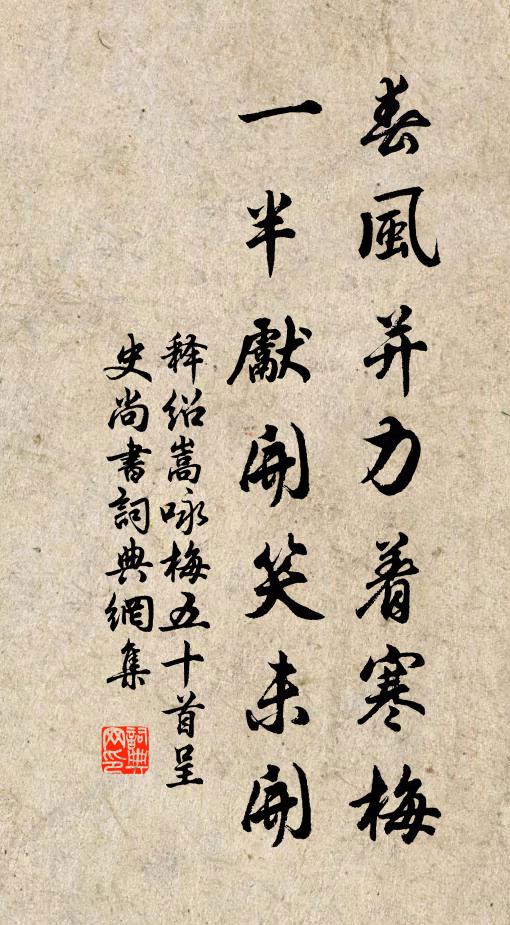 春風并力着寒梅
一半獻開笑未開
释绍嵩咏梅五十首呈
史尚書詞典網集
詞典网印